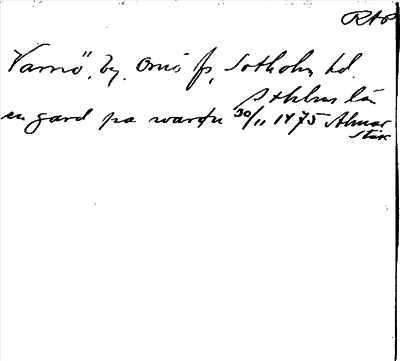 RAP
Varnö, by. Ornö sn, Sotholms hd.
Sthlms län
en gard pa wardn 30/11 1475 Almar
stäk